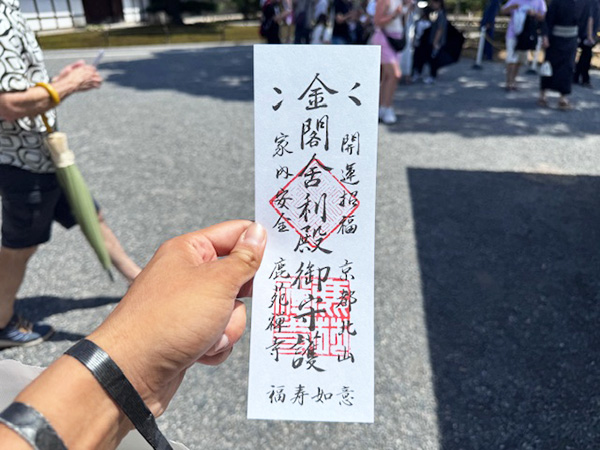 金閣舎利殿御守護
開運招福 京都北山
家内安全 鹿苑禅寺
福寿如意